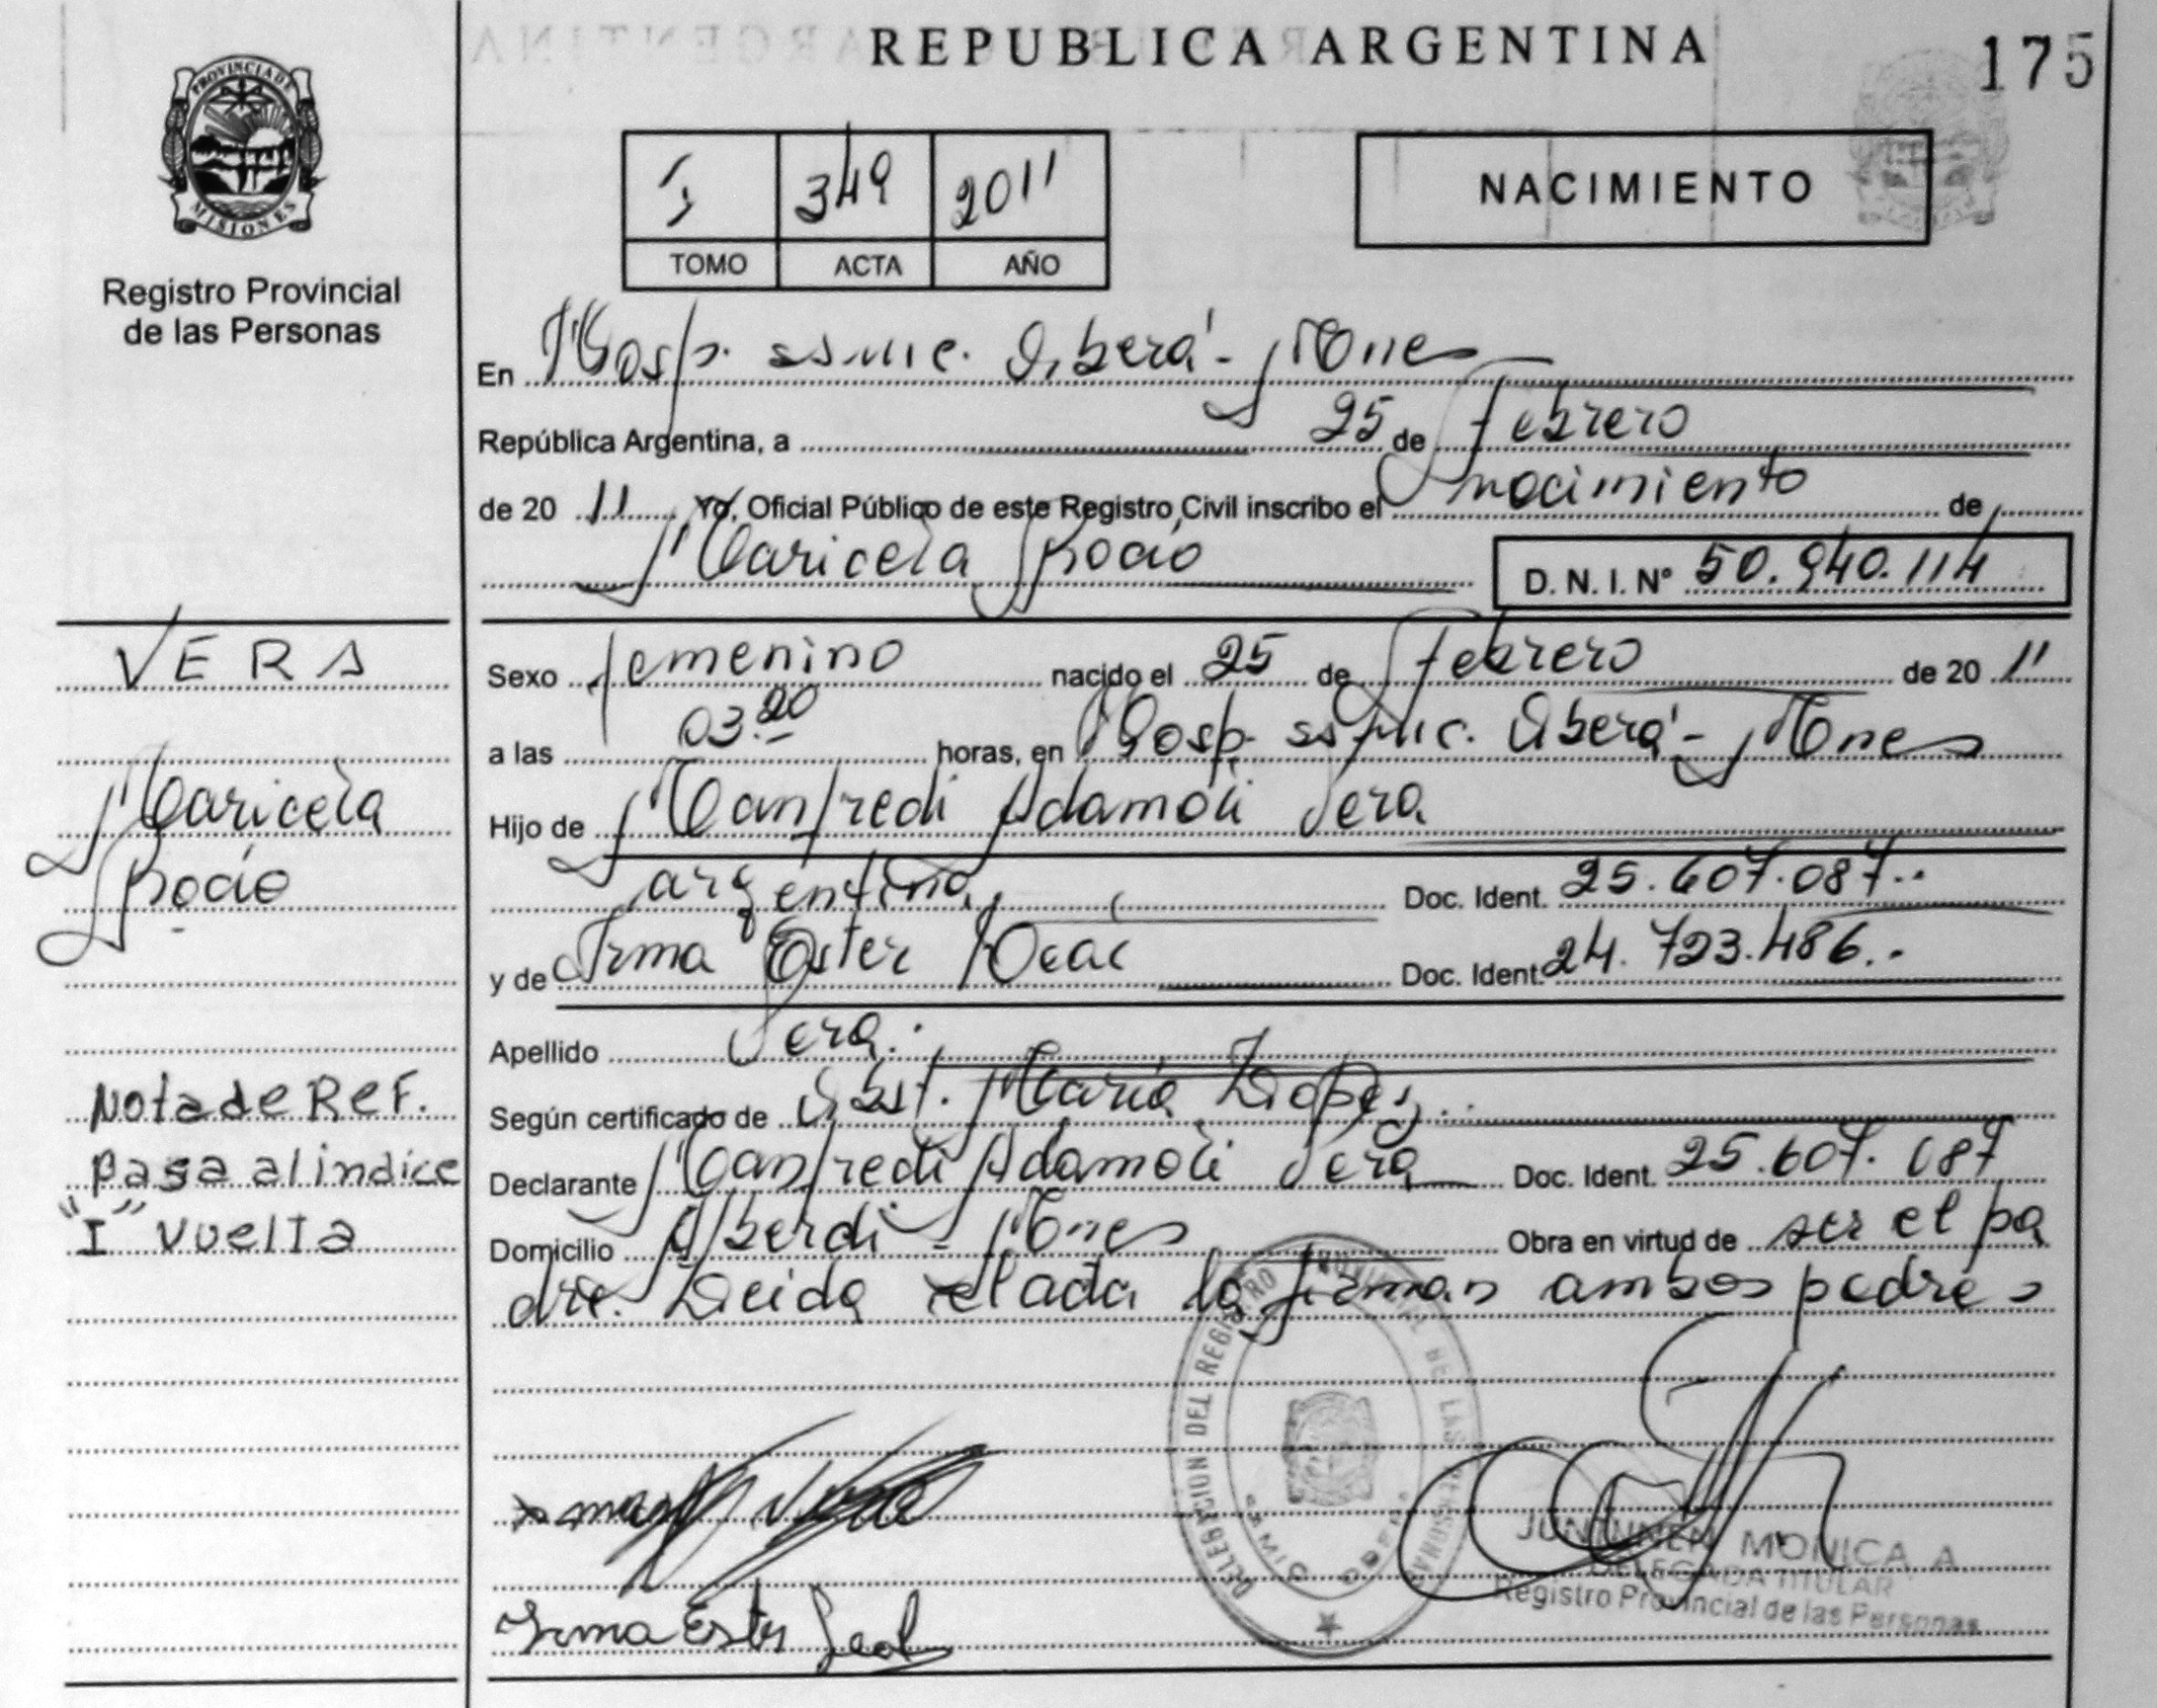 REPUBLICA ARGENTINA
175
PROVINCIA DE
MISIONES
Registro Provincial
de las Personas
I 349 2011
TOMO ACTA AÑO
NACIMIENTO
En Hosp. ss.mc. Oberá - Mnes
República Argentina, a 25 de Febrero
de 20 11 Yo, Oficial Público de este Registro Civil inscribo el nacimiento de
Maricela Rocío
D. N. I. Nº 50.940.114
VERA
Maricela
Rocío
Nota de Ref.
Pasa al indice
"I" vuelta
Sexo femenino nacido el 25 de Febrero de 20 11
a las 03.20 horas, en Hosp. ss.mc. Oberá - Mnes
Hijo de Manfredi Adamoli Vera
argentina, Doc. Ident. 25.607.087..
y de Irma Ester Doc. Ident. 24.723.486..
Apellido Vera.
Según certificado de Obst. María Lopes..
Declarante Manfredi Adamoli Vera Doc. Ident. 25.607.087
Domicilio Alberdi - Mnes Obra en virtud de ser el pa
dre. Leida el acta la firman ambos padres
DELEGACION DEL REGISTRO PROVINCIAL DE LAS PERSONAS
Irma Ester Leal
MONICA A
DELEGADA TITULAR
Registro Provincial de las Personas